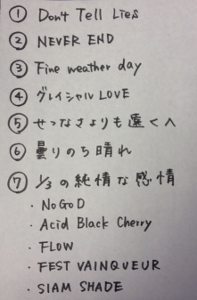 ① Don't Tell Lies
② NEVER END
③ Fine weather day
④ グレイシャルLOVE
⑤ せつなさよりも遠くへ
⑥ 曇りのち晴れ
⑦ 1/3の純情な感情
・NoGoD
・Acid Black Cherry
・FLOW
・FEST VAINQUEUR
・SIAM SHADE